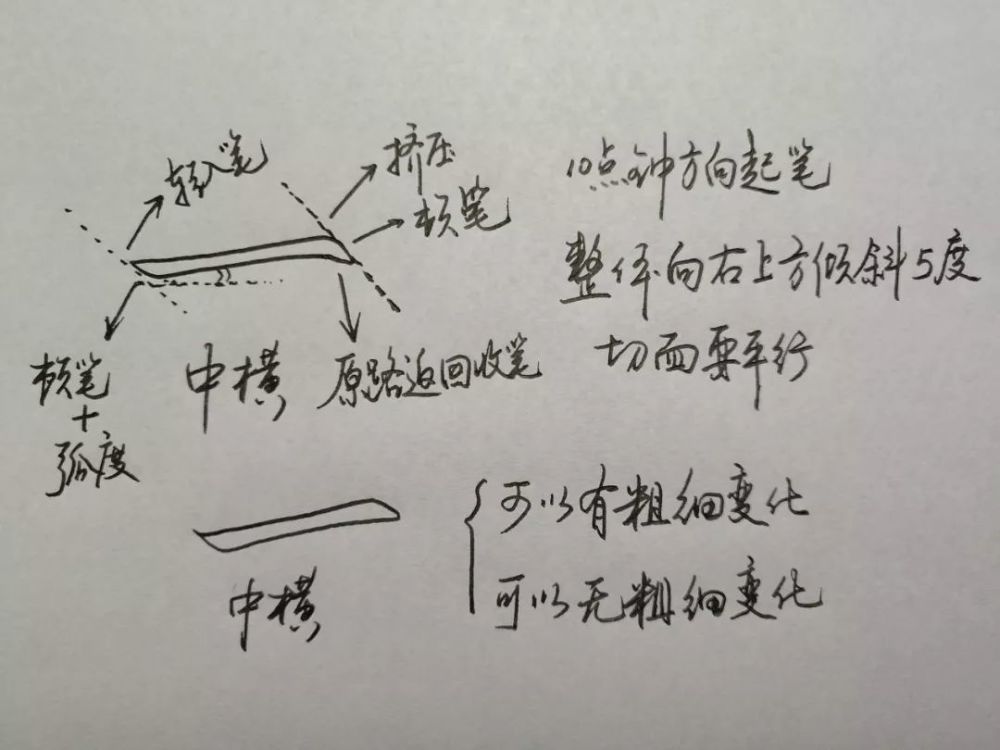 轻入笔
挤压
顿笔
10点钟方向起笔
整体向右上方倾斜5度
切面要平行
顿笔
+
弧度
中横
原路返回收笔
可以有粗细变化
中横
可以无粗细变化